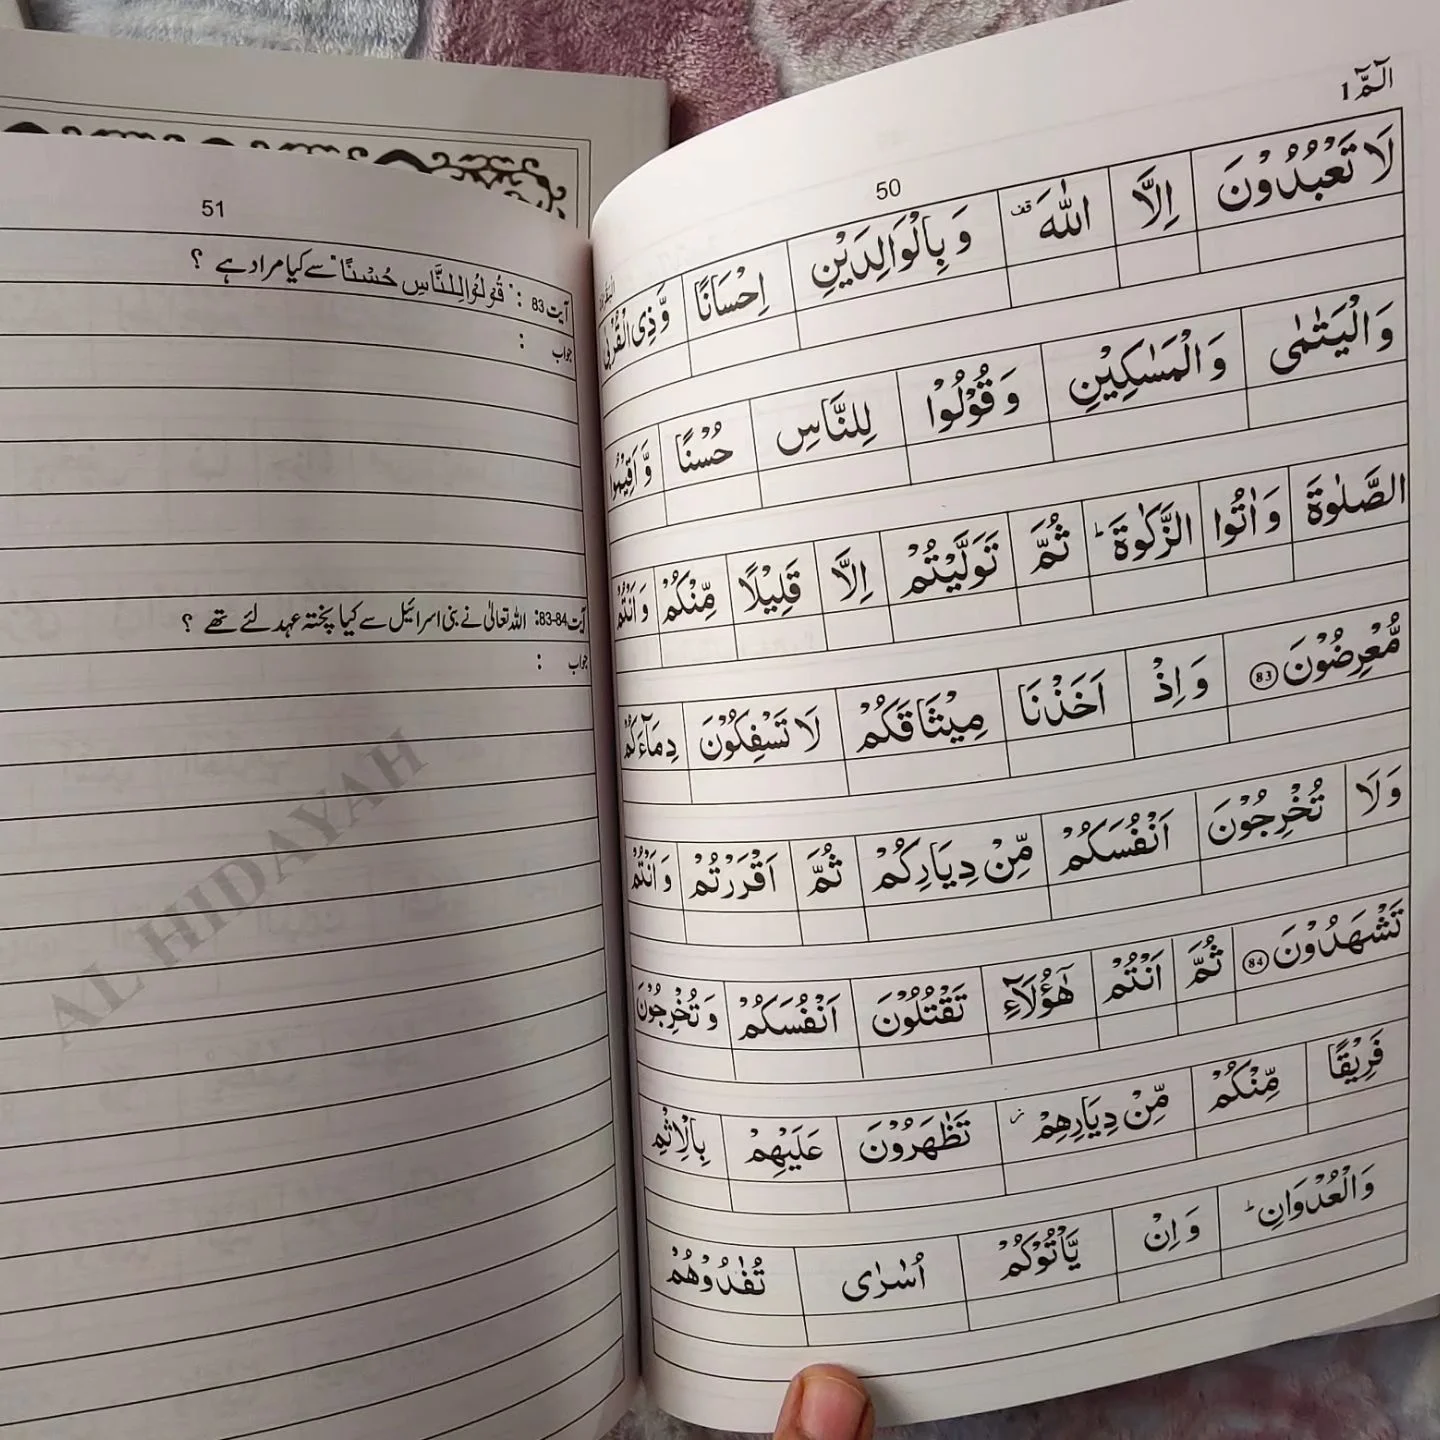 الٓـمّٓ 1
50
لَا تَعْبُدُوْنَ اِلَّا اللّٰهَ قف وَ بِالْوَالِدَيْنِ اِحْسَانًا وَّ ذِي الْقُرْبٰى
وَ الْيَتٰمٰى وَ الْمَسٰكِيْنِ وَ قُوْلُوْا لِلنَّاسِ حُسْنًا وَّ اَقِيْمُوا
الصَّلٰوةَ وَ اٰتُوا الزَّكٰوةَ ؕ ثُمَّ تَوَلَّيْتُمْ اِلَّا قَلِيْلًا مِّنْكُمْ وَ اَنْتُمْ
مُّعْرِضُوْنَ 83 وَ اِذْ اَخَذْنَا مِيْثَاقَكُمْ لَا تَسْفِكُوْنَ دِمَآءَكُمْ
وَ لَا تُخْرِجُوْنَ اَنْفُسَكُمْ مِّنْ دِيَارِكُمْ ثُمَّ اَقْرَرْتُمْ وَ اَنْتُمْ
تَشْهَدُوْنَ 84 ثُمَّ اَنْتُمْ هٰٓؤُلَآءِ تَقْتُلُوْنَ اَنْفُسَكُمْ وَ تُخْرِجُوْنَ
فَرِيْقًا مِّنْكُمْ مِّنْ دِيَارِهِمْ ز تَظٰهَرُوْنَ عَلَيْهِمْ بِالْاِثْمِ
وَ الْعُدْوَانِ ؕ وَ اِنْ يَّاْتُوْكُمْ اُسٰرٰى تُفٰدُوْهُمْ
51
آیت 83 : "قُوْلُوْا لِلنَّاسِ حُسْنًا" سے کیا مراد ہے ؟
جواب :
آیت 83-84: اللہ تعالیٰ نے بنی اسرائیل سے کیا پختہ عہد لئے تھے ؟
جواب :
AL HIDAYAH